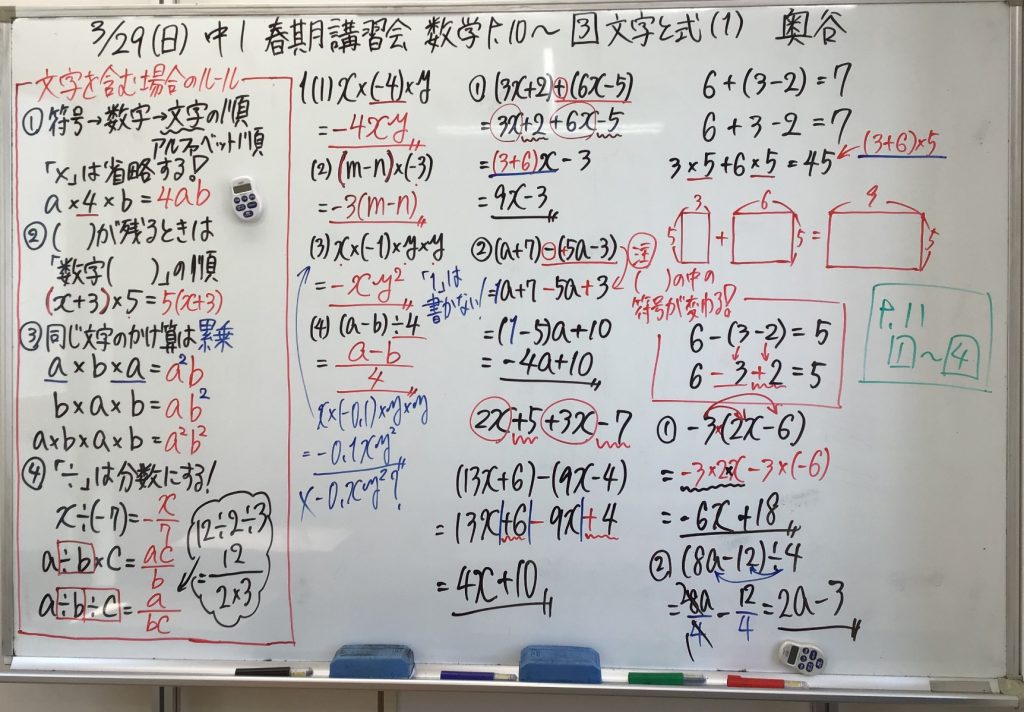 3/29(日) 中1 春期講習会 数学P.10～ 3 文字と式(1) 奥谷
文字を含む場合のルール
① 符号→数字→文字の順
アルファベット順
「×」は省略する!
a×4×b=4ab
② ( )が残るときは
「数字( )」の順
(x+3)×5=5(x+3)
③ 同じ文字のかけ算は累乗
a×b×a=a²b
b×a×b=ab²
a×b×a×b=a²b²
④ 「÷」は分数にする!
x÷(-7)=-x/7
a÷b×c=ac/b
a÷b÷c=a/bc
12÷2÷3
=12/2×3
1(1) x×(-4)×y
=-4xy
(2) (m-n)×(-3)
=-3(m-n)
(3) x×(-1)×y×y
=-xy²
「1」は
書かない!
(4) (a-b)÷4
=a-b/4
x×(-0.1)×y×y
=-0.1xy²
× -0.xy²?
① (3x+2)+(6x-5)
=3x+2+6x-5
=(3+6)x-3
=9x-3
② (a+7)-(+5a-3)
=1a+7-5a+3
=(1-5)a+10
=-4a+10
2x+5+3x-7
(13x+6)-(9x-4)
=13x+6-9x+4
=4x+10
6+(3-2)=7
6+3-2=7
3×5+6×5=45
(3+6)×5
3 6 9
5 + 5 = 5
注
( )の中の
符号が変わる!
6-(3-2)=5
6-3+2=5
① -3(2x-6)
=-3×2x-3×(-6)
=-6x+18
② (8a-12)÷4
=8a/4-12/4=2a-3
P.11
1～4